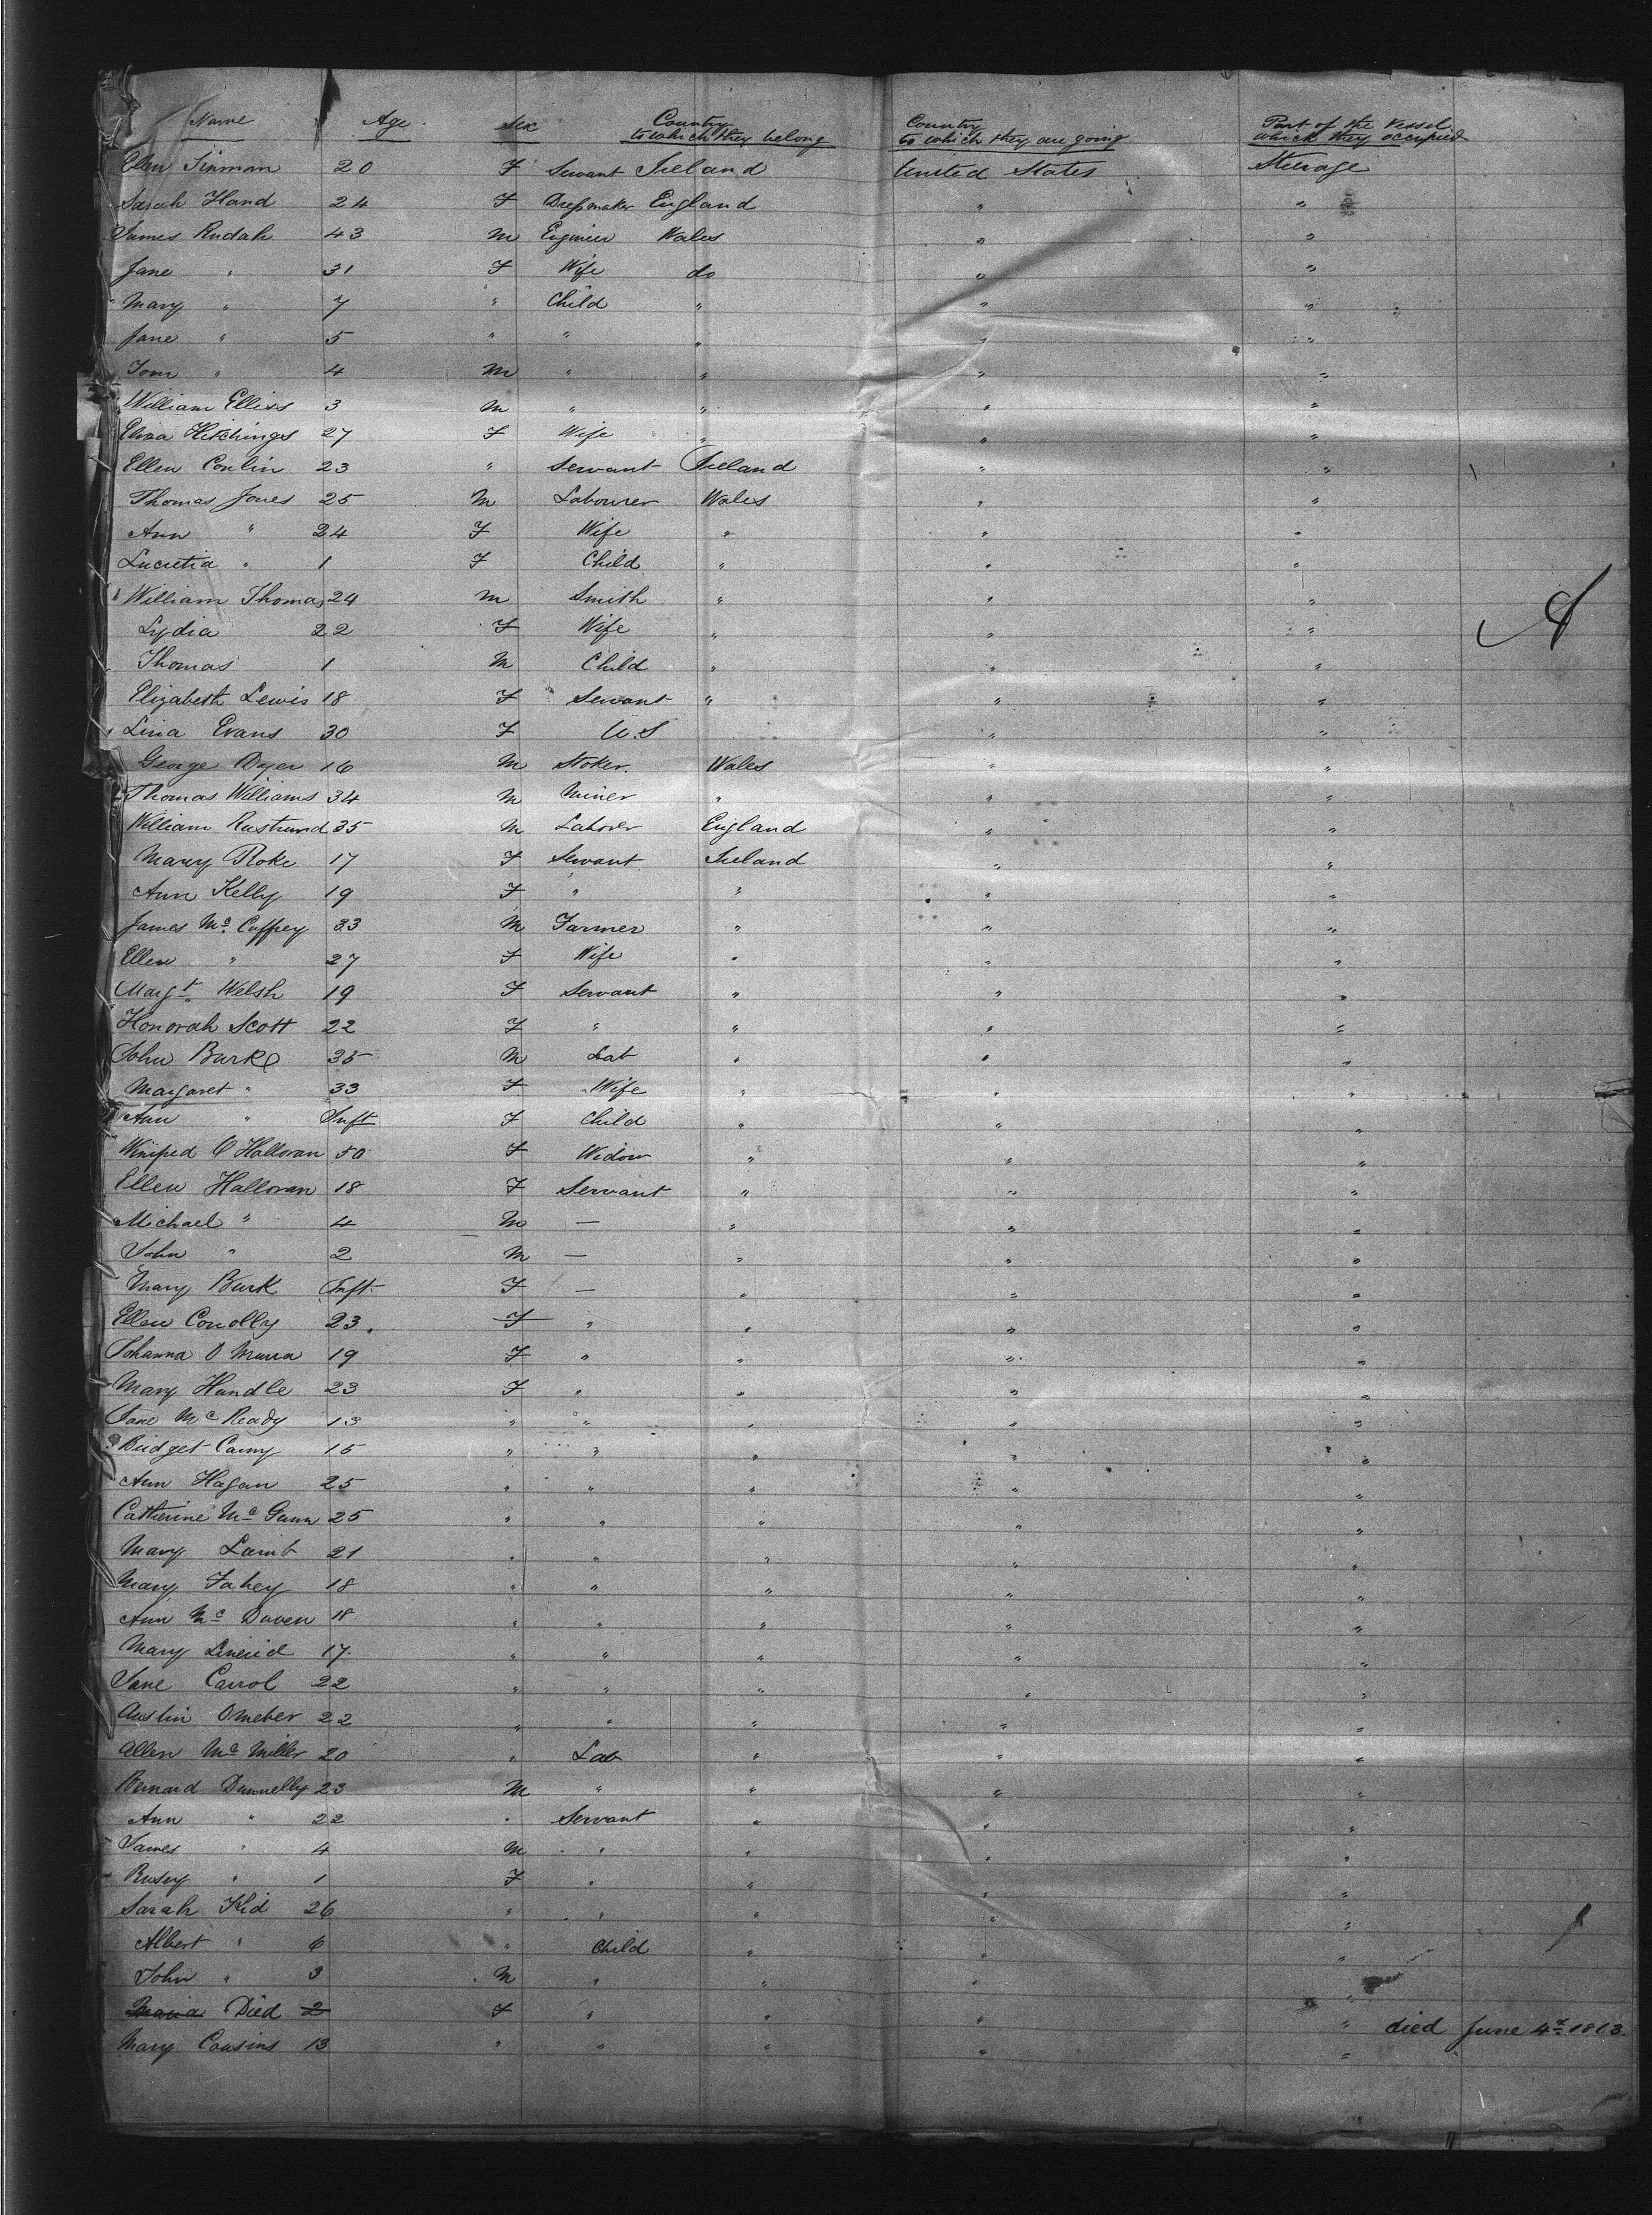 Name Age Sex Country to which they belong Country to which they are going Part of the vessel which they occupied
Ellen 20 F Servant Ireland United States Steerage
Sarah Hand 24 F Dressmaker England " "
James Rudah 43 M Engineer Wales " "
Jane " 31 F Wife do " "
Mary " 7 " Child " " "
Jane " 5 " " " " "
Tom " 4 M " " " "
William Elliss 3 M " " " "
Eliza Hitchings 27 F Wife " " "
Ellen Conlin 23 " Servant Ireland " "
Thomas Jones 25 M Labourer Wales " "
Ann " 24 F Wife " " "
Lucretia " 1 F Child " " "
William Thomas 24 M Smith " " "
Lydia 22 F Wife " " "
Thomas 1 M Child " " "
Elizabeth Lewis 18 F Servant " " "
Lina Evans 30 F U.S " "
George Dyer 16 M Stoker. Wales " "
Thomas Williams 34 M Miner " " "
William 35 M Laborer England " "
Mary Roke 17 F Servant Ireland " "
Ann Kelly 19 F " " " "
James Mc Caffrey 33 M Farmer " " "
Ellen " 27 F Wife " " "
Margt. Welsh 19 F Servant " " "
Honorah Scott 22 F " " " "
John Burke 35 M Lab " " "
Margaret " 33 F Wife " " "
Ann " Inft F Child " " "
Winifred O Halloran 50 F Widow " " "
Ellen Halloran 18 F Servant " " "
Michael " 4 M — " " "
John " 2 M — " " "
Mary Burk Inft. F — " " "
Ellen Conolly 23. F " " " "
Johanna O Mara 19 F " " " "
Mary Handle 23 F " " " "
Jane Mc Ready 13 " " " " "
Bridget 15 " " " " "
Ann Hagan 25 " " " " "
Catherine Mc Gunn 25 " " " " "
Mary Lamb 21 " " " " "
Mary Fahey 18 " " " " "
Ann Mc Daven 18 " " " " "
Mary 17. " " " " "
Jane Carrol 22 " " " " "
Austin Omeber 22 " " " " "
Allen Mc Miller 20 " Lab " " "
Bernard Dunnelly 23 M " " " "
Ann " 22 " Servant " " "
James " 4 M " " " "
" 1 F " " " "
Sarah Kid 26 " " " " "
Albert " 6 " Child " " "
John " 3 M " " " "
Maria Died 2 F " " " " died June 4th 1863.
Mary Cousins 13 " " " " "